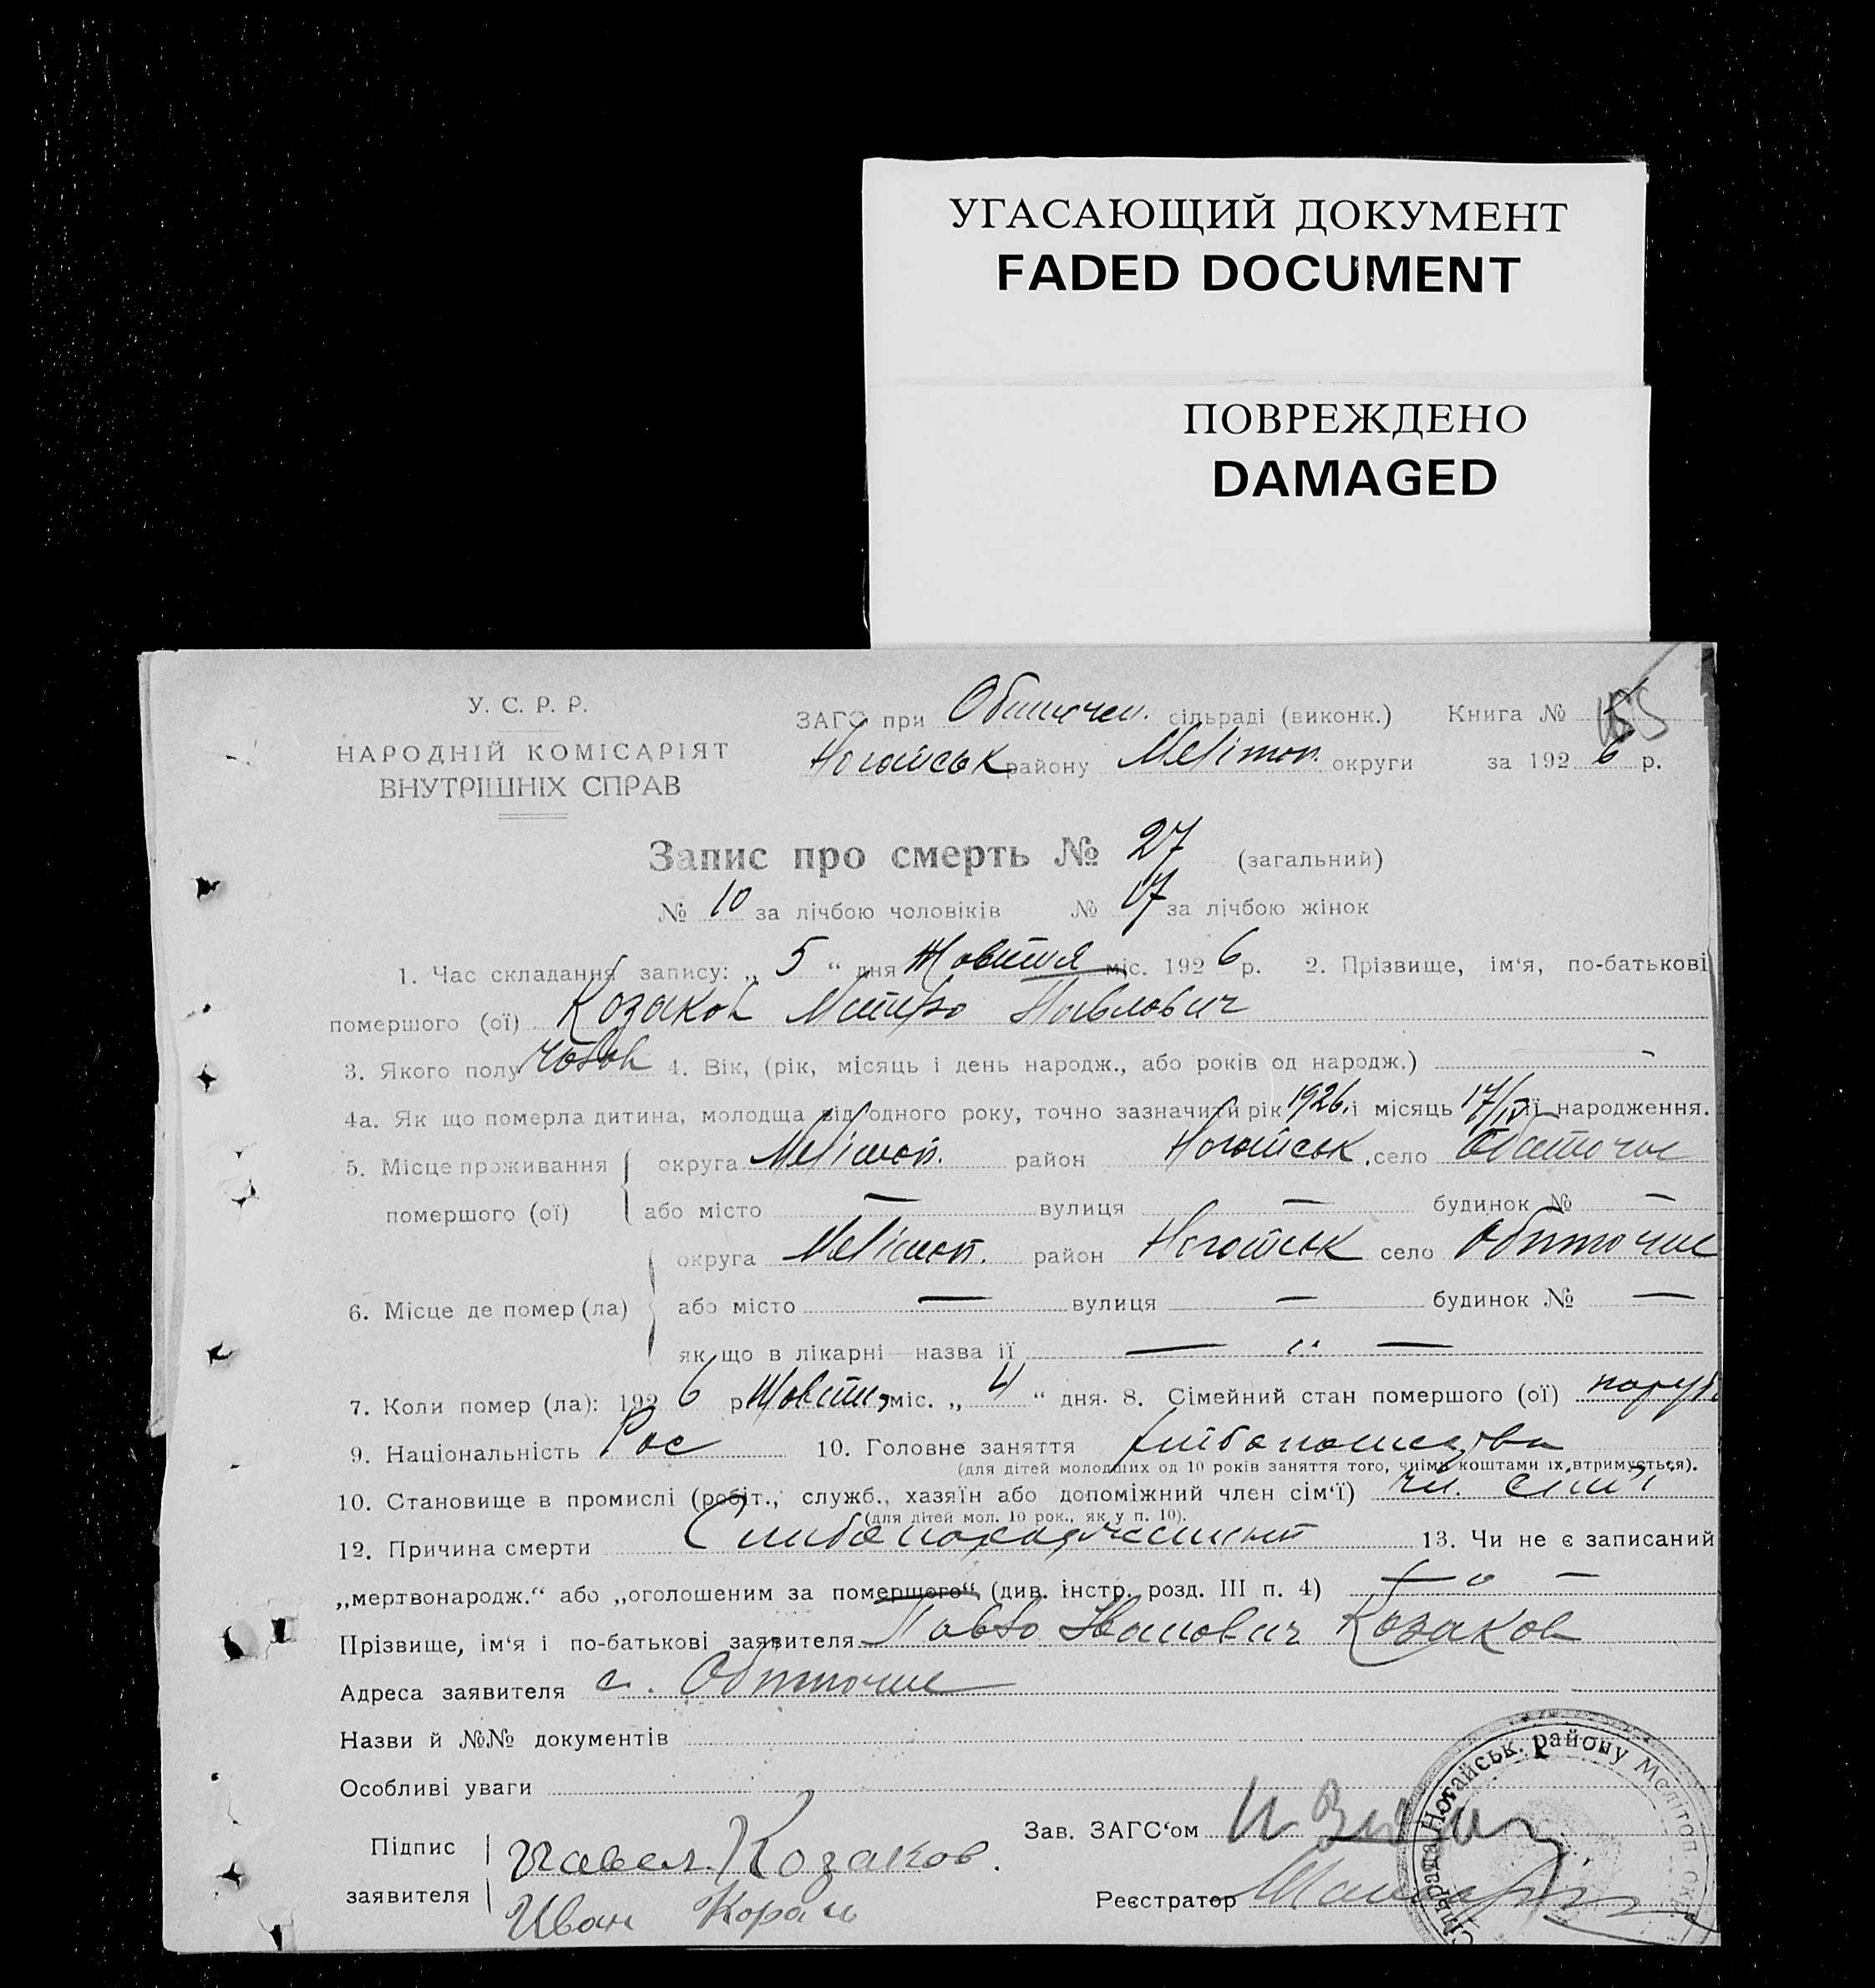 УГАСАЮЩИЙ ДОКУМЕНТ
FADED DOCUMENT
ПОВРЕЖДЕНО
DAMAGED
У. С. Р. Р.
НАРОДНІЙ КОМІСАРІЯТ
ВНУТРІШНІХ СПРАВ
ЗАГС при Обиточен. сільраді (виконк.) Книга №
Ногайськ району Мелітоп. округи за 1926 р.
Запис про смерть № 27 (загальний)
№ 10 за лічбою чоловіків № 17 за лічбою жінок
1. Час складання запису: „ 5 “ дня Жовтня міс. 1926 р. 2. Прізвище, ім‘я, по-батькові
помершого (ої) Козаков Митро Павлович
3. Якого полу 4. Вік, (рік, місяць і день народж., або років од народж.) —
4а. Як що померла дитина, молодща від одного року, точно зазначити рік 1926 і місяць 17/IV її народження.
5. Місце проживання округа Мелітоп. район Ногайськ село Обиточне
помершого (ої) або місто — вулиця — будинок № —
округа Мелітоп. район Ногайськ село Обиточне
6. Місце де помер (ла) або місто — вулиця — будинок № —
як що в лікарні—назва її — „ —
7. Коли помер (ла): 1926 р Жовтня міс. „ 4 “ дня. 8. Сімейний стан помершого (ої)
9. Національність Рос 10. Головне заняття
(для дітей молодших од 10 років заняття того, чиїми коштами їх втримується).
10. Становище в промислі (робіт., служб., хазяїн або допоміжний член сім‘ї) чл. сім'ї
(для дітей мол. 10 рок., як у п. 10).
12. Причина смерти 13. Чи не є записаний
„мертвонародж.“ або „оголошеним за померщого“ (див. інстр. розд. III п. 4) — „ —
Прізвище, ім‘я і по-батькові заявителя Павло Іванович Козаков
Адреса заявителя с. Обиточне
Назви й №№ документів
Особливі уваги
Підпис Павел Козаков.
заявителя Иван
Зав. ЗАГС‘ом
Реєстратор
Сільрада Ногайськ. району Мелітоп. окр.